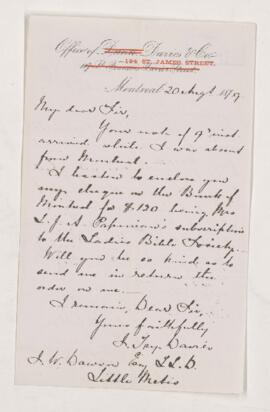 Office of Dunn Davies & Co.
194 ST. JAMES STREET.
Montreal 20 Aug't 1879
My dear Sir,
Your note of 9' inst
arrived while I was absent
from Montreal.
I hasten to enclose you
my cheque on the Bank of
Montreal for $130 being Mrs
L. J. A. Papineau's subscription
to the Ladies Bible Society.
Will you be so kind as to
send me in return the
order on me.
I remain, Dear Sir,
Yours faithfully
Davies
J. W. Dawson Esq L.L.D.
Little Metis